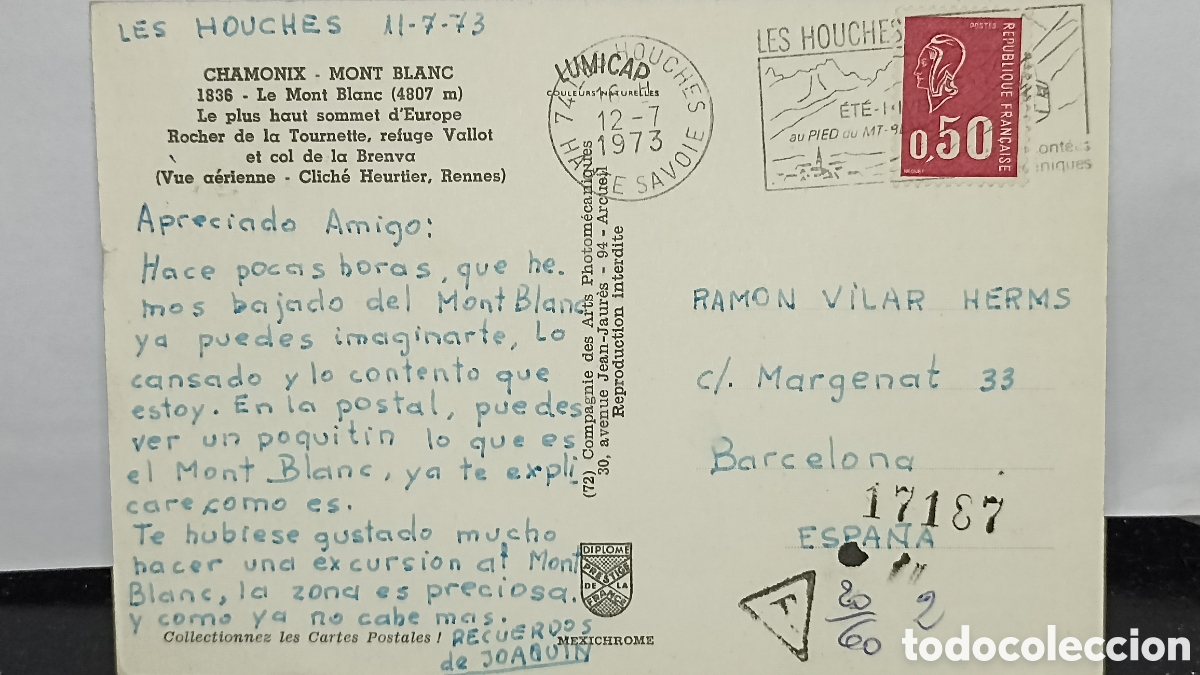 LES HOUCHES 11-7-73
CHAMONIX - MONT BLANC
1836 - Le Mont Blanc (4807 m)
Le plus haut sommet d'Europe
Rocher de la Tournette, refuge Vallot
et col de la Brenva
(Vue aérienne - Cliché Heurtier, Rennes)
Apreciado Amigo:
Hace pocas horas, que he.
mos bajado del Mont Blanc
ya puedes imaginarte, Lo
cansado y lo contento que
estoy. En la postal, puedes
ver un poquitin lo que es
el Mont Blanc, ya te expli
care como es.
Te hubiese gustado mucho
hacer una excursion al Mont
Blanc, la zona es preciosa.
y como ya no cabe mas.
RECUERDOS
de JOAQUIN
Collectionnez les Cartes Postales !
MEXICHROME
DIPLOME
PRESTIGE
DE LA
FRANCE
LUMICAP
COULEURS NATURELLES
(72) Compagnie des Arts Photomécaniques
30, avenue Jean-Jaurès - 94 - Arcueil
Reproduction interdite
74 LES HOUCHES
12-7
1973
HAUTE SAVOIE
LES HOUCHES
ÉTÉ
au PIED du MT-BL
ontées
niques
POSTES
REPUBLIQUE FRANÇAISE
0,50
BEQUET
RAMON VILAR HERMS
c/. Margenat 33
Barcelona
17187
ESPAÑA
T
20/60
2
todocoleccion